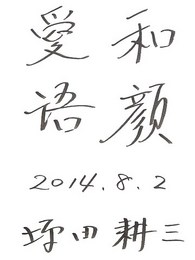 和顔
愛語
2014.8.2
坪田耕三